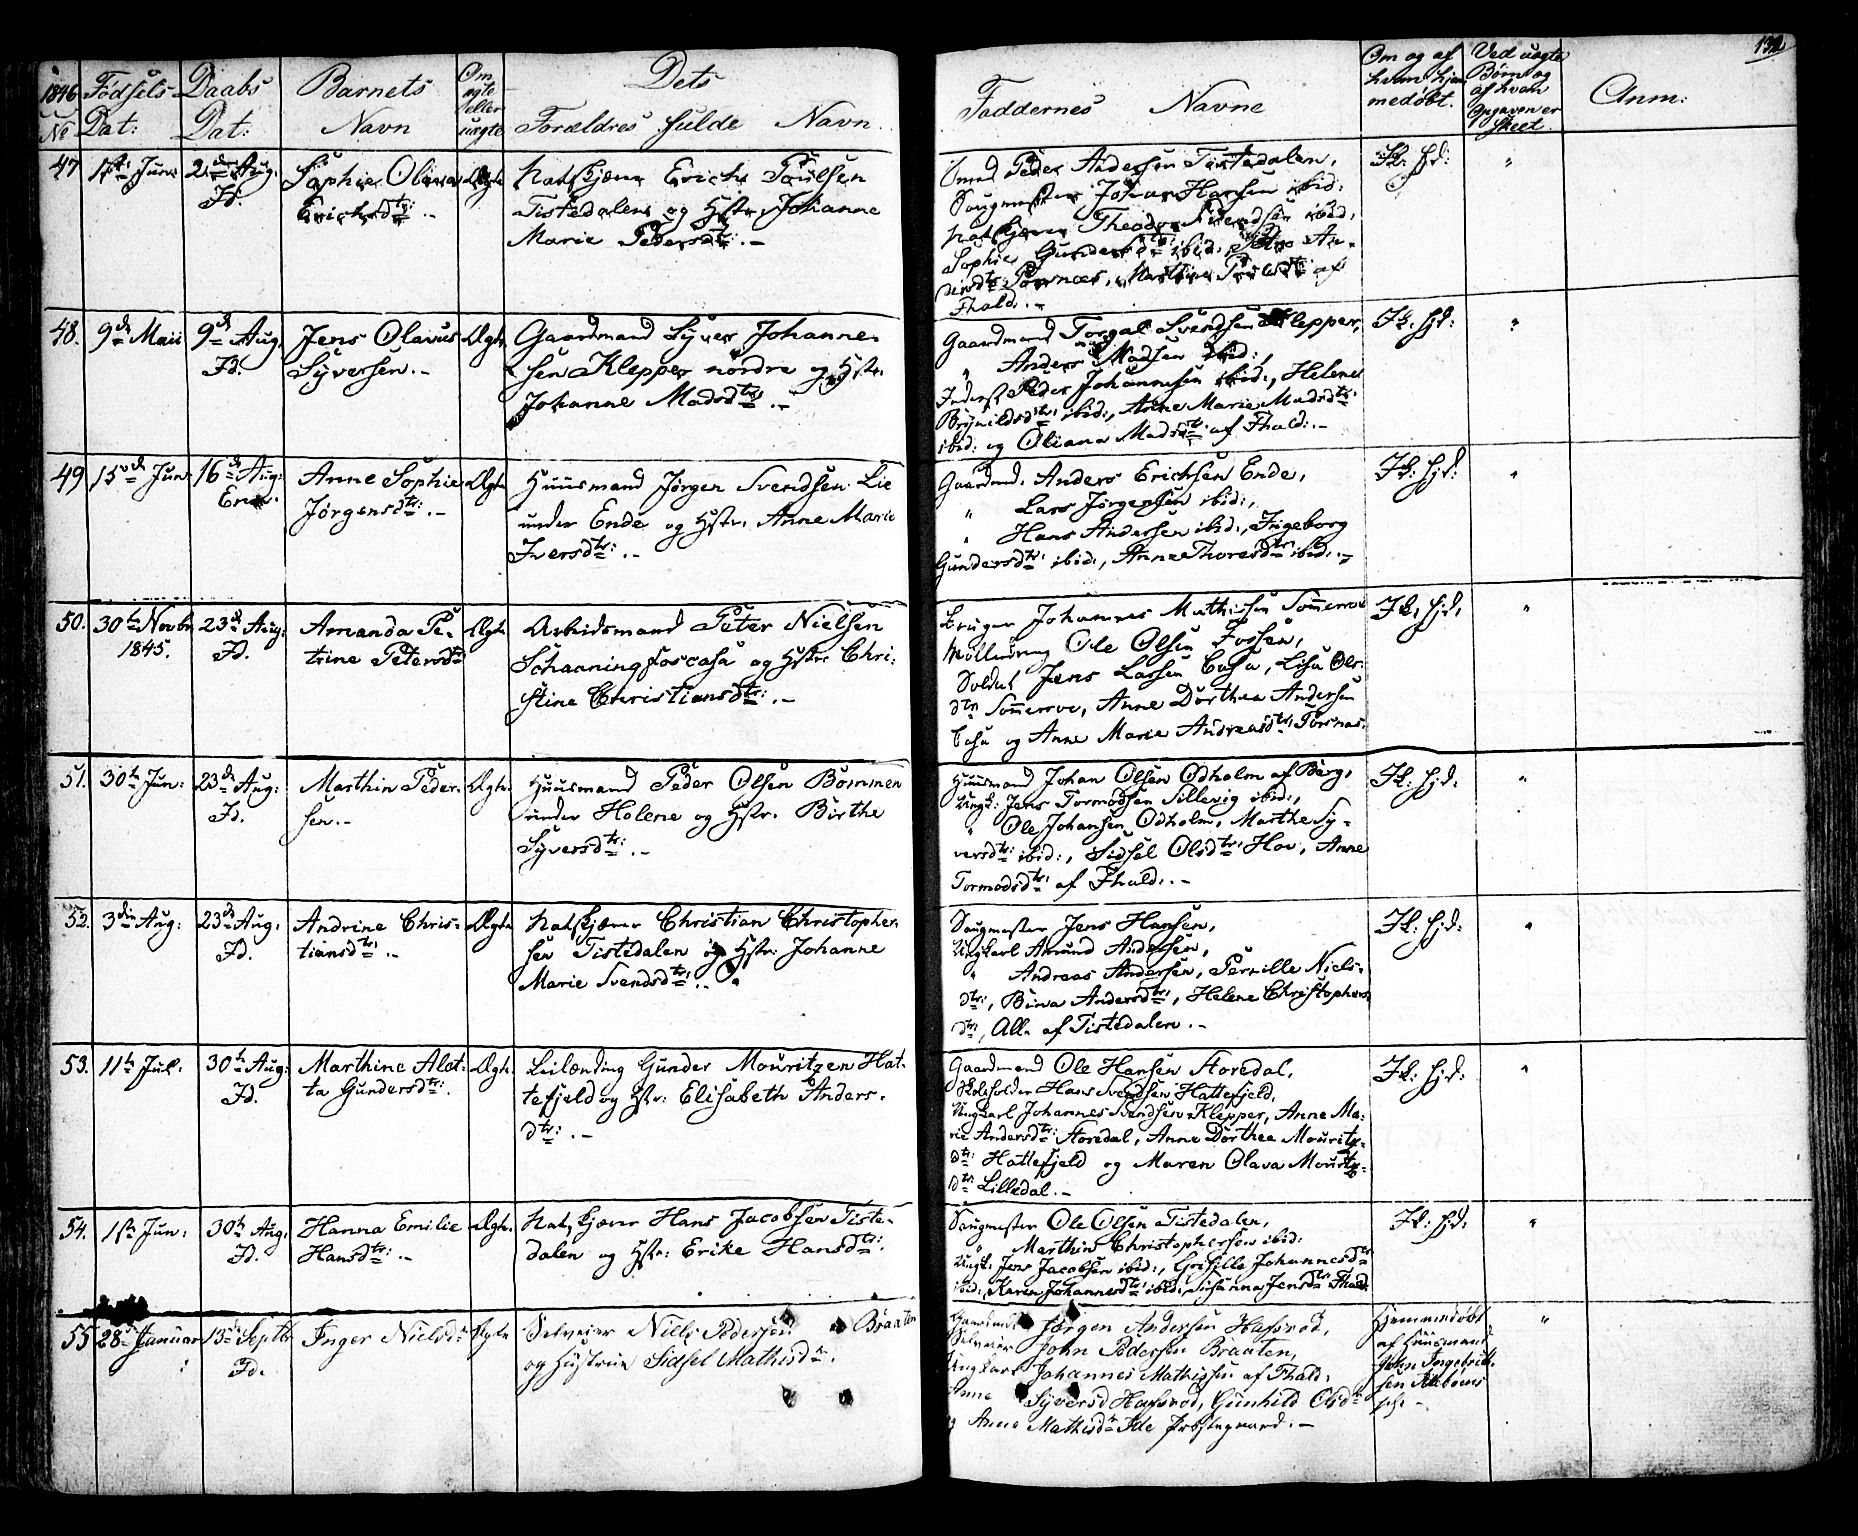 132
1846 Fødsels Daabs Barnets Om ægte eller uægte Dets
No Dat: Dat: Navn Forældres fulde Navn
Faddernes Navne
Om og af hvem hjemmedøbt.
Ved uægte Børn og af hvem Opgaven er skeet.
Anm:
47 1ste Jun: 2den Aug: Id. Sophie Olivia Erichsdtr: .- Ægte
Natskjærer Erich Poulsen
Tistedalen og Hstr: Johanne
Marie Pedersdtr: .-
Smed Peder Andersen Tistedalen,
Saugmester Johan Hansen ibid:
Natskjærer Theodor Svendsen ibid,
Sophie Gundersdtr: ibid:
dersdtr: Torsnæs, Marthine Poulsdtr: af
Fhald: .-
Ik: Hjd: "
48. 9de Maii 9de Aug. Id. Jens Olavus Syversen .- Ægte
Gaardmand Syver Johanne-
sen Klepper nordre og Hstr:
Johanne Madsdtr: .-
Gaardmand Torgal Svendsen Klepper,
" Anders Madsen ibid:
Inderst Peder Johannesen ibid:, Helene
Brynildsdtr: ibid:, Anne Marie Madsdtr:
ibid: og Oliana Madsdtr: af Fhald: .-
Ik: Hjd: "
49 15de Jun: 16de Aug: Anne Sophie Jørgensdtr: .- Ægte
Huusmand Jørgen Svendsen Lie
under Ende og Hstr: Anne Marie
Iversdtr: .-
Gaardmd. Anders Erichsen Ende,
" Lars Jørgensen ibid:,
" Hans Andersen ibid:, Ingeborg
Gundersdtr: ibid:, Anne Thoresdtr: ibid: .-
Ik: Hjd: "
50. 30te Novbr 1845. 23de Aug: Id. Amanda Pe-
trine Petersdtr Ægte
Arbeidsmand Peter Nielsen
Schaaningfoscasa og Hstr: Chri-
stine Christiansdtr: .-
Bruger Johannes Mathisen Sommeroe
Møllesvend Ole Olsen Fossen,
Soldat Jens Larsen Casa, Lisa Ols-
dtr Sommeroe, Anne Dorthea Andersen
Casa og Anne Marie Andreasdtr: Torsnas.
Ik: Hjd: "
51. 30te Jun: 23de Aug: Id. Marthin Peder-
sen .- Ægte
Huusmand Peder Olsen Bommen
under Holene og Hstr. Birthe
Syversdtr: .-
Huusmand Johan Olsen Odholm af Berg,
Ungk: Jens Tormodsen Sillevig ibid:,
" Ole Johansen Odholm, Marthe Sy-
versdtr: ibid:, Sidsel Olsdtr: Hov, Anne
Tormodsdtr: af Fhald: .-
Ik: Hjd: "
52. 3die Aug: 23de Aug: Id. Andrine Chris-
tiansdtr: .- Ægte
Natskjærer Christian Christopher-
sen Tistedalen og Hstr: Johanne
Marie Svendsdtr: .-
Saugmester Jens Hansen,
Ungkarl Amund Andersen,
" Andreas Andersen, Pernille Niels-
dtr:, Birva Andersdtr:, Helene Christophers-
dtr, Alle af Tistedalen .-
Ik: Hjd: "
53. 11te Jul: 30te Aug: Id. Marthine Alet-
ta Gundersdtr: Ægte
Leilænding Gunder Mouritzen Hat-
tefjeld og Hstr: Elisabeth Anders-
dtr: .-
Gaardmand Ole Hansen Storedal,
Skoleholder Hans Svendsen Hattefjeld,
Ungkarl Johannes Svendsen Klepper, Anne Ma-
rie Andersdtr: Storedal, Anne Dorthea Mouritz-
dtr: Hattefjeld og Maren Olava Mouritz-
dtr Lilledal .-
Ik: Hjd: "
54. 1ste Jun: 30te Aug: Id. Hanna Emilie
Hansdtr: .- Ægte
Natskjærer Hans Jacobsen Tiste-
dalen og Hstr: Erike Hansdtr:
Saugmester Ole Olsen Tistedalen,
" Marthin Christophersen ibid:
Ungk: Jens Jacobsen ibid:, Grisille Johannesdtr
ibid:, Karen Johannesdtr: ibid:, Susanna Jensdtr: Fhald:
Ik: Hjd: "
55 28de Januar 13de Septbr Id. Inger Nielsdtr Ægte
Selveier Niels Pedersen Braaten
og Hustrue Sidsel Mathisdtr.
Gaardmd Jørgen Andersen Hafsrød,
Selveier John Pedersen Braaten,
Ungkarl Johannes Mathissen af Fhald:
Anne Syversd Hafsrød, Gunhild Olsdtr
og Anne Mathisdtr Ide Præstegaard .-
Hjemmedøbt
af Huusmand
John Ingebrit-
sen
"